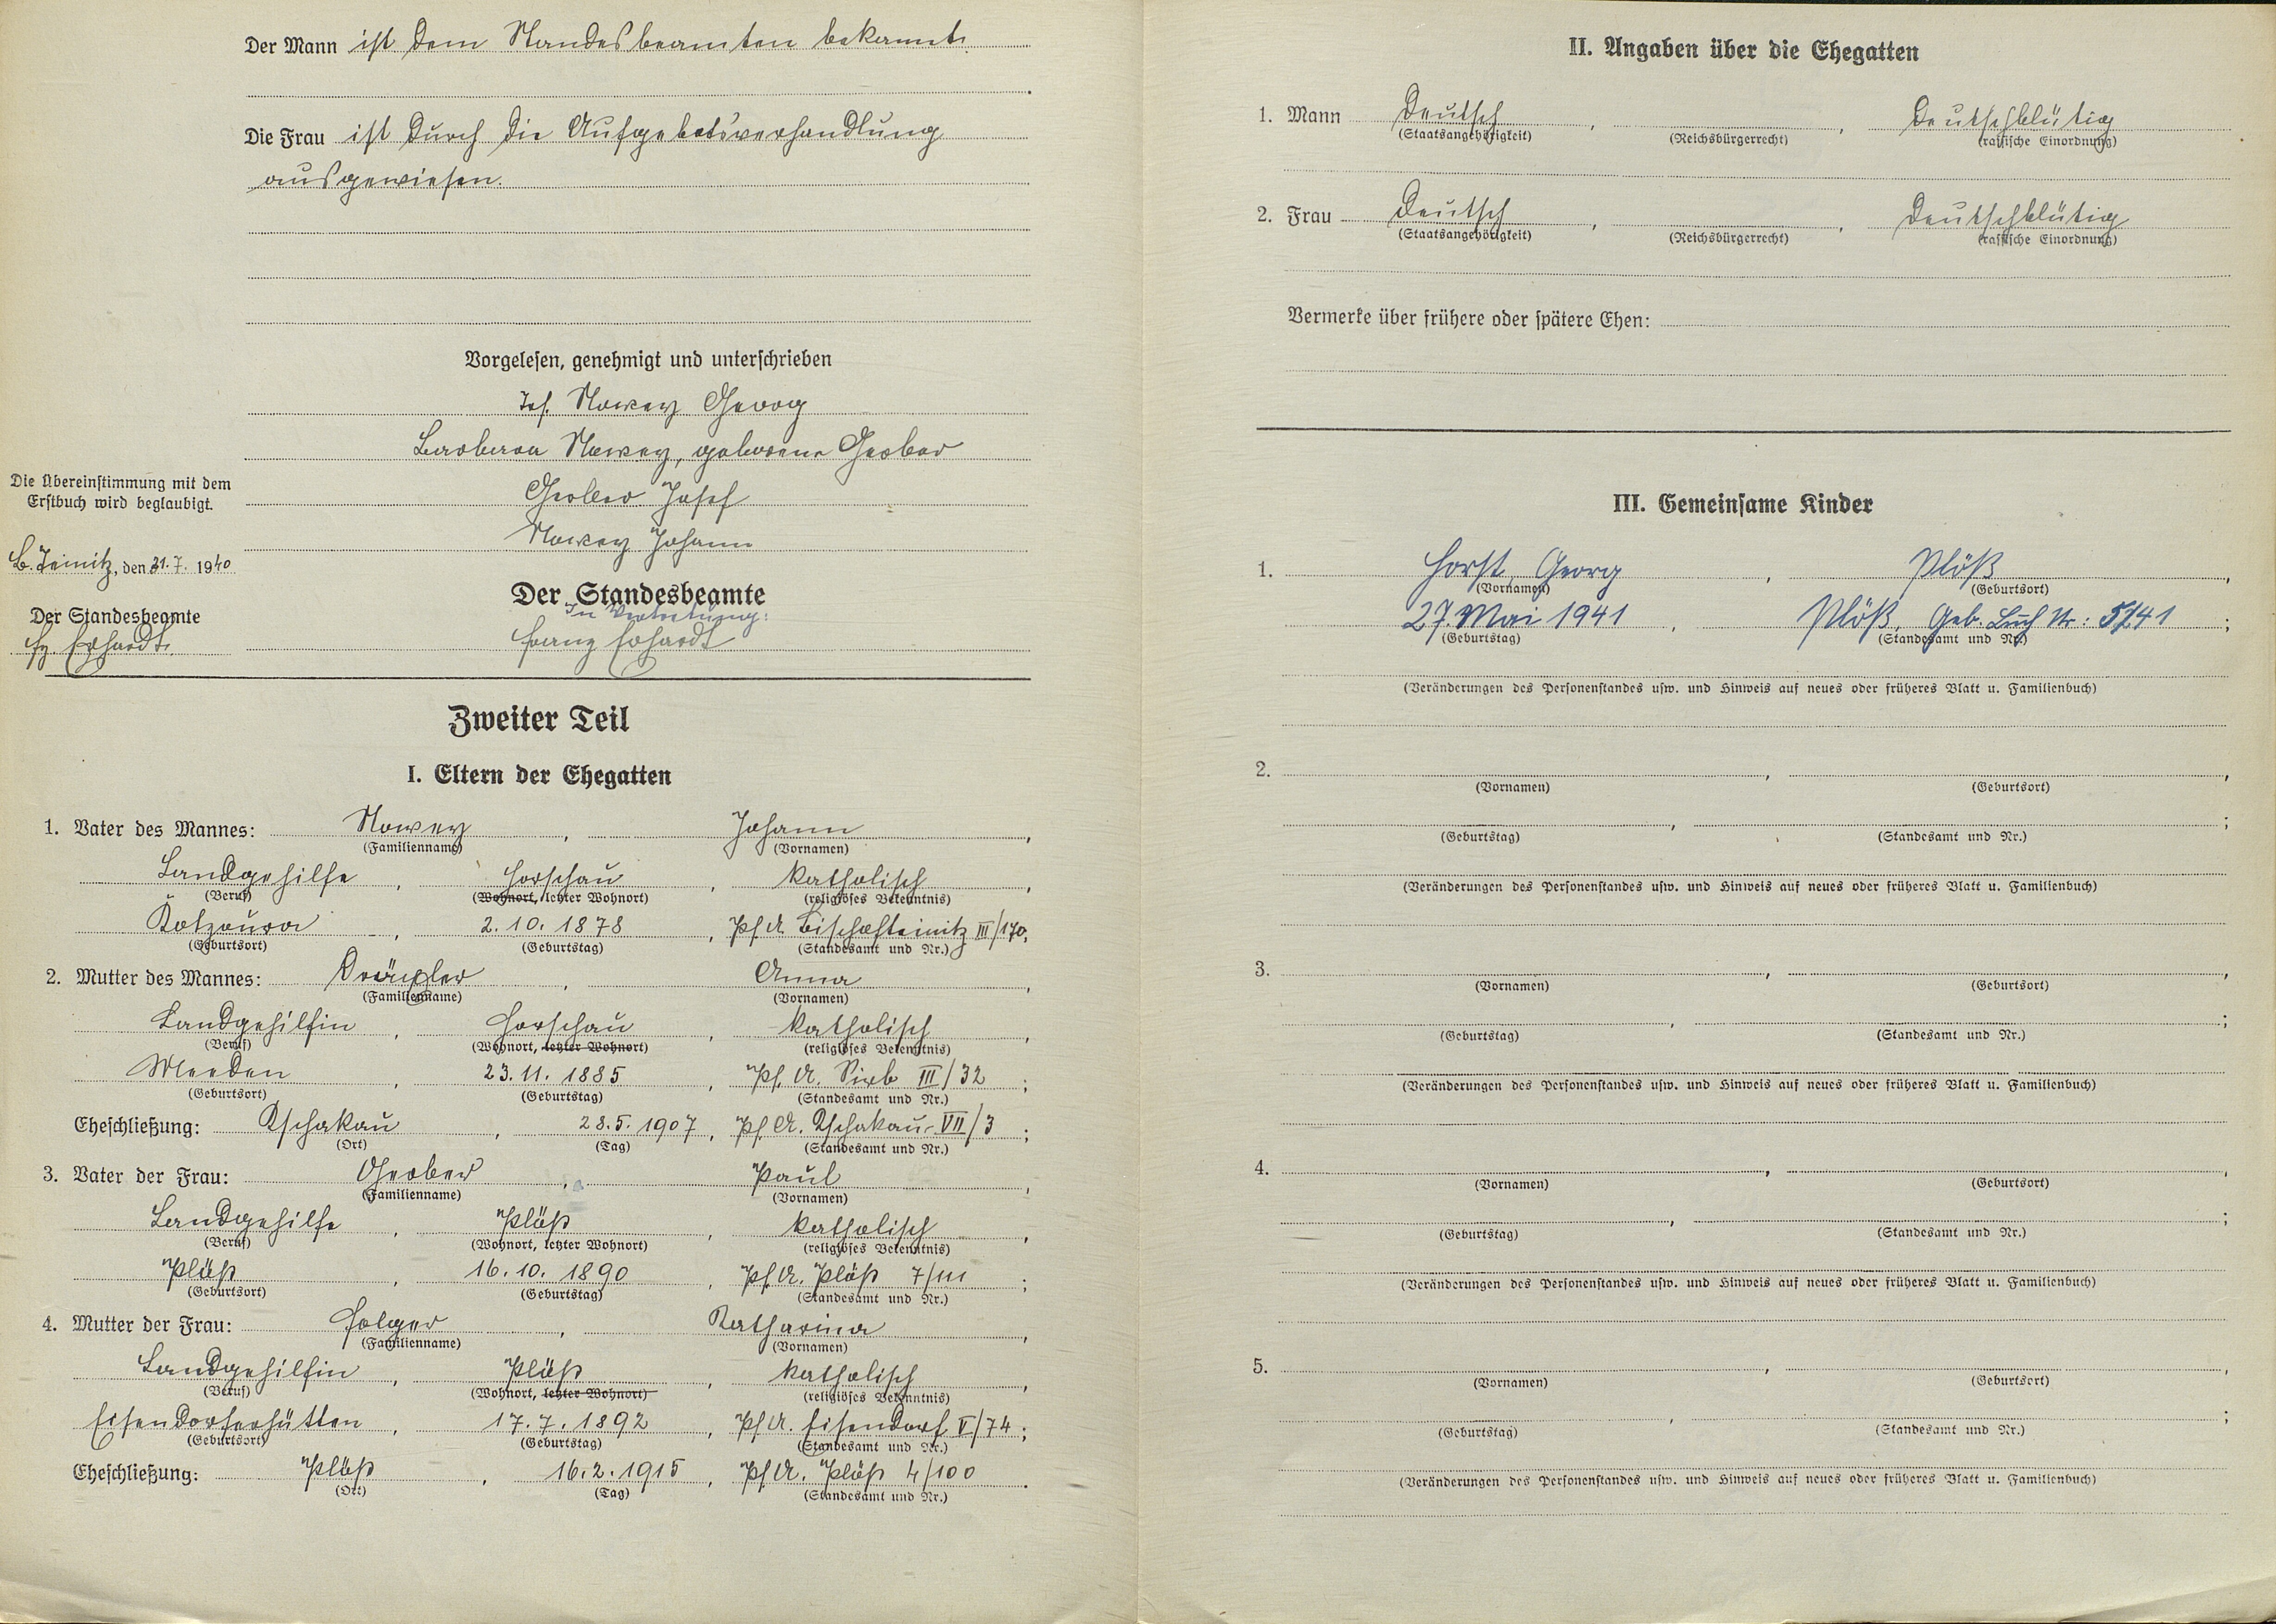 Der Mann ist dem Standesbeamten bekannt.
Die Frau ist durch die Aufgebotsverhandlung
ausgewiesen.
Vorgelesen, genehmigt und unterschrieben
Jos. Nowey Georg
Barbara Nowey, geborene Grober
Grober Josef
Nowey Johann
Die Übereinstimmung mit dem
Erstbuch wird beglaubigt.
B. Teinitz, den 31. 7. 1940
Der Standesbeamte
Fz. Erhardt
Der Standesbeamte
In Vertretung:
Franz Erhardt
Zweiter Teil
I. Eltern der Ehegatten
1. Vater des Mannes: Nowey, Johann,
(Familienname) (Vornamen)
Landgehilfe, Horschau, katholisch,
(Beruf) (Wohnort, letzter Wohnort) (religiöses Bekenntnis)
Kotzoura, 2. 10. 1878, Pf. A. Bischofteinitz III/170,
(Geburtsort) (Geburtstag) (Standesamt und Nr.)
2. Mutter des Mannes: Anna,
(Familienname) (Vornamen)
Landgehilfin, Horschau, katholisch,
(Beruf) (Wohnort, letzter Wohnort) (religiöses Bekenntnis)
Meeden, 23. 11. 1885, Pf. A. Sirb III/32;
(Geburtsort) (Geburtstag) (Standesamt und Nr.)
Eheschließung: Kschakau, 28. 5. 1907, Pf. A. Kschakau VII/3;
(Ort) (Tag) (Standesamt und Nr.)
3. Vater der Frau: Grober, Paul,
(Familienname) (Vornamen)
Landgehilfe, Plöß, katholisch,
(Beruf) (Wohnort, letzter Wohnort) (religiöses Bekenntnis)
Plöß, 16. 10. 1890, Pf. A. Plöß 7/111;
(Geburtsort) (Geburtstag) (Standesamt und Nr.)
4. Mutter der Frau: Holger, Katharina,
(Familienname) (Vornamen)
Landgehilfin, Plöß, katholisch,
(Beruf) (Wohnort, letzter Wohnort) (religiöses Bekenntnis)
Eisendorferhütten, 17. 7. 1892, Pf. A. Eisendorf V/74;
(Geburtsort) (Geburtstag) (Standesamt und Nr.)
Eheschließung: Plöß, 16. 2. 1915, Pf. A. Plöß 4/100.
(Ort) (Tag) (Standesamt und Nr.)
II. Angaben über die Ehegatten
1. Mann Deutsch, , Deutschblütig
(Staatsangehörigkeit) (Reichsbürgerrecht) (rassische Einordnung)
2. Frau Deutsch, , Deutschblütig
(Staatsangehörigkeit) (Reichsbürgerrecht) (rassische Einordnung)
Vermerke über frühere oder spätere Ehen:
III. Gemeinsame Kinder
1. Horst, Georg, Plöß,
(Vornamen) (Geburtsort)
27. Mai 1941, Plöß, Geb. Buch Nr: 5/41;
(Geburtstag) (Standesamt und Nr.)
(Veränderungen des Personenstandes usw. und Hinweis auf neues oder früheres Blatt u. Familienbuch)
2. , ,
(Vornamen) (Geburtsort)
, ;
(Geburtstag) (Standesamt und Nr.)
(Veränderungen des Personenstandes usw. und Hinweis auf neues oder früheres Blatt u. Familienbuch)
3. , ,
(Vornamen) (Geburtsort)
, ;
(Geburtstag) (Standesamt und Nr.)
(Veränderungen des Personenstandes usw. und Hinweis auf neues oder früheres Blatt u. Familienbuch)
4. , ,
(Vornamen) (Geburtsort)
, ;
(Geburtstag) (Standesamt und Nr.)
(Veränderungen des Personenstandes usw. und Hinweis auf neues oder früheres Blatt u. Familienbuch)
5. , ,
(Vornamen) (Geburtsort)
, ;
(Geburtstag) (Standesamt und Nr.)
(Veränderungen des Personenstandes usw. und Hinweis auf neues oder früheres Blatt u. Familienbuch)